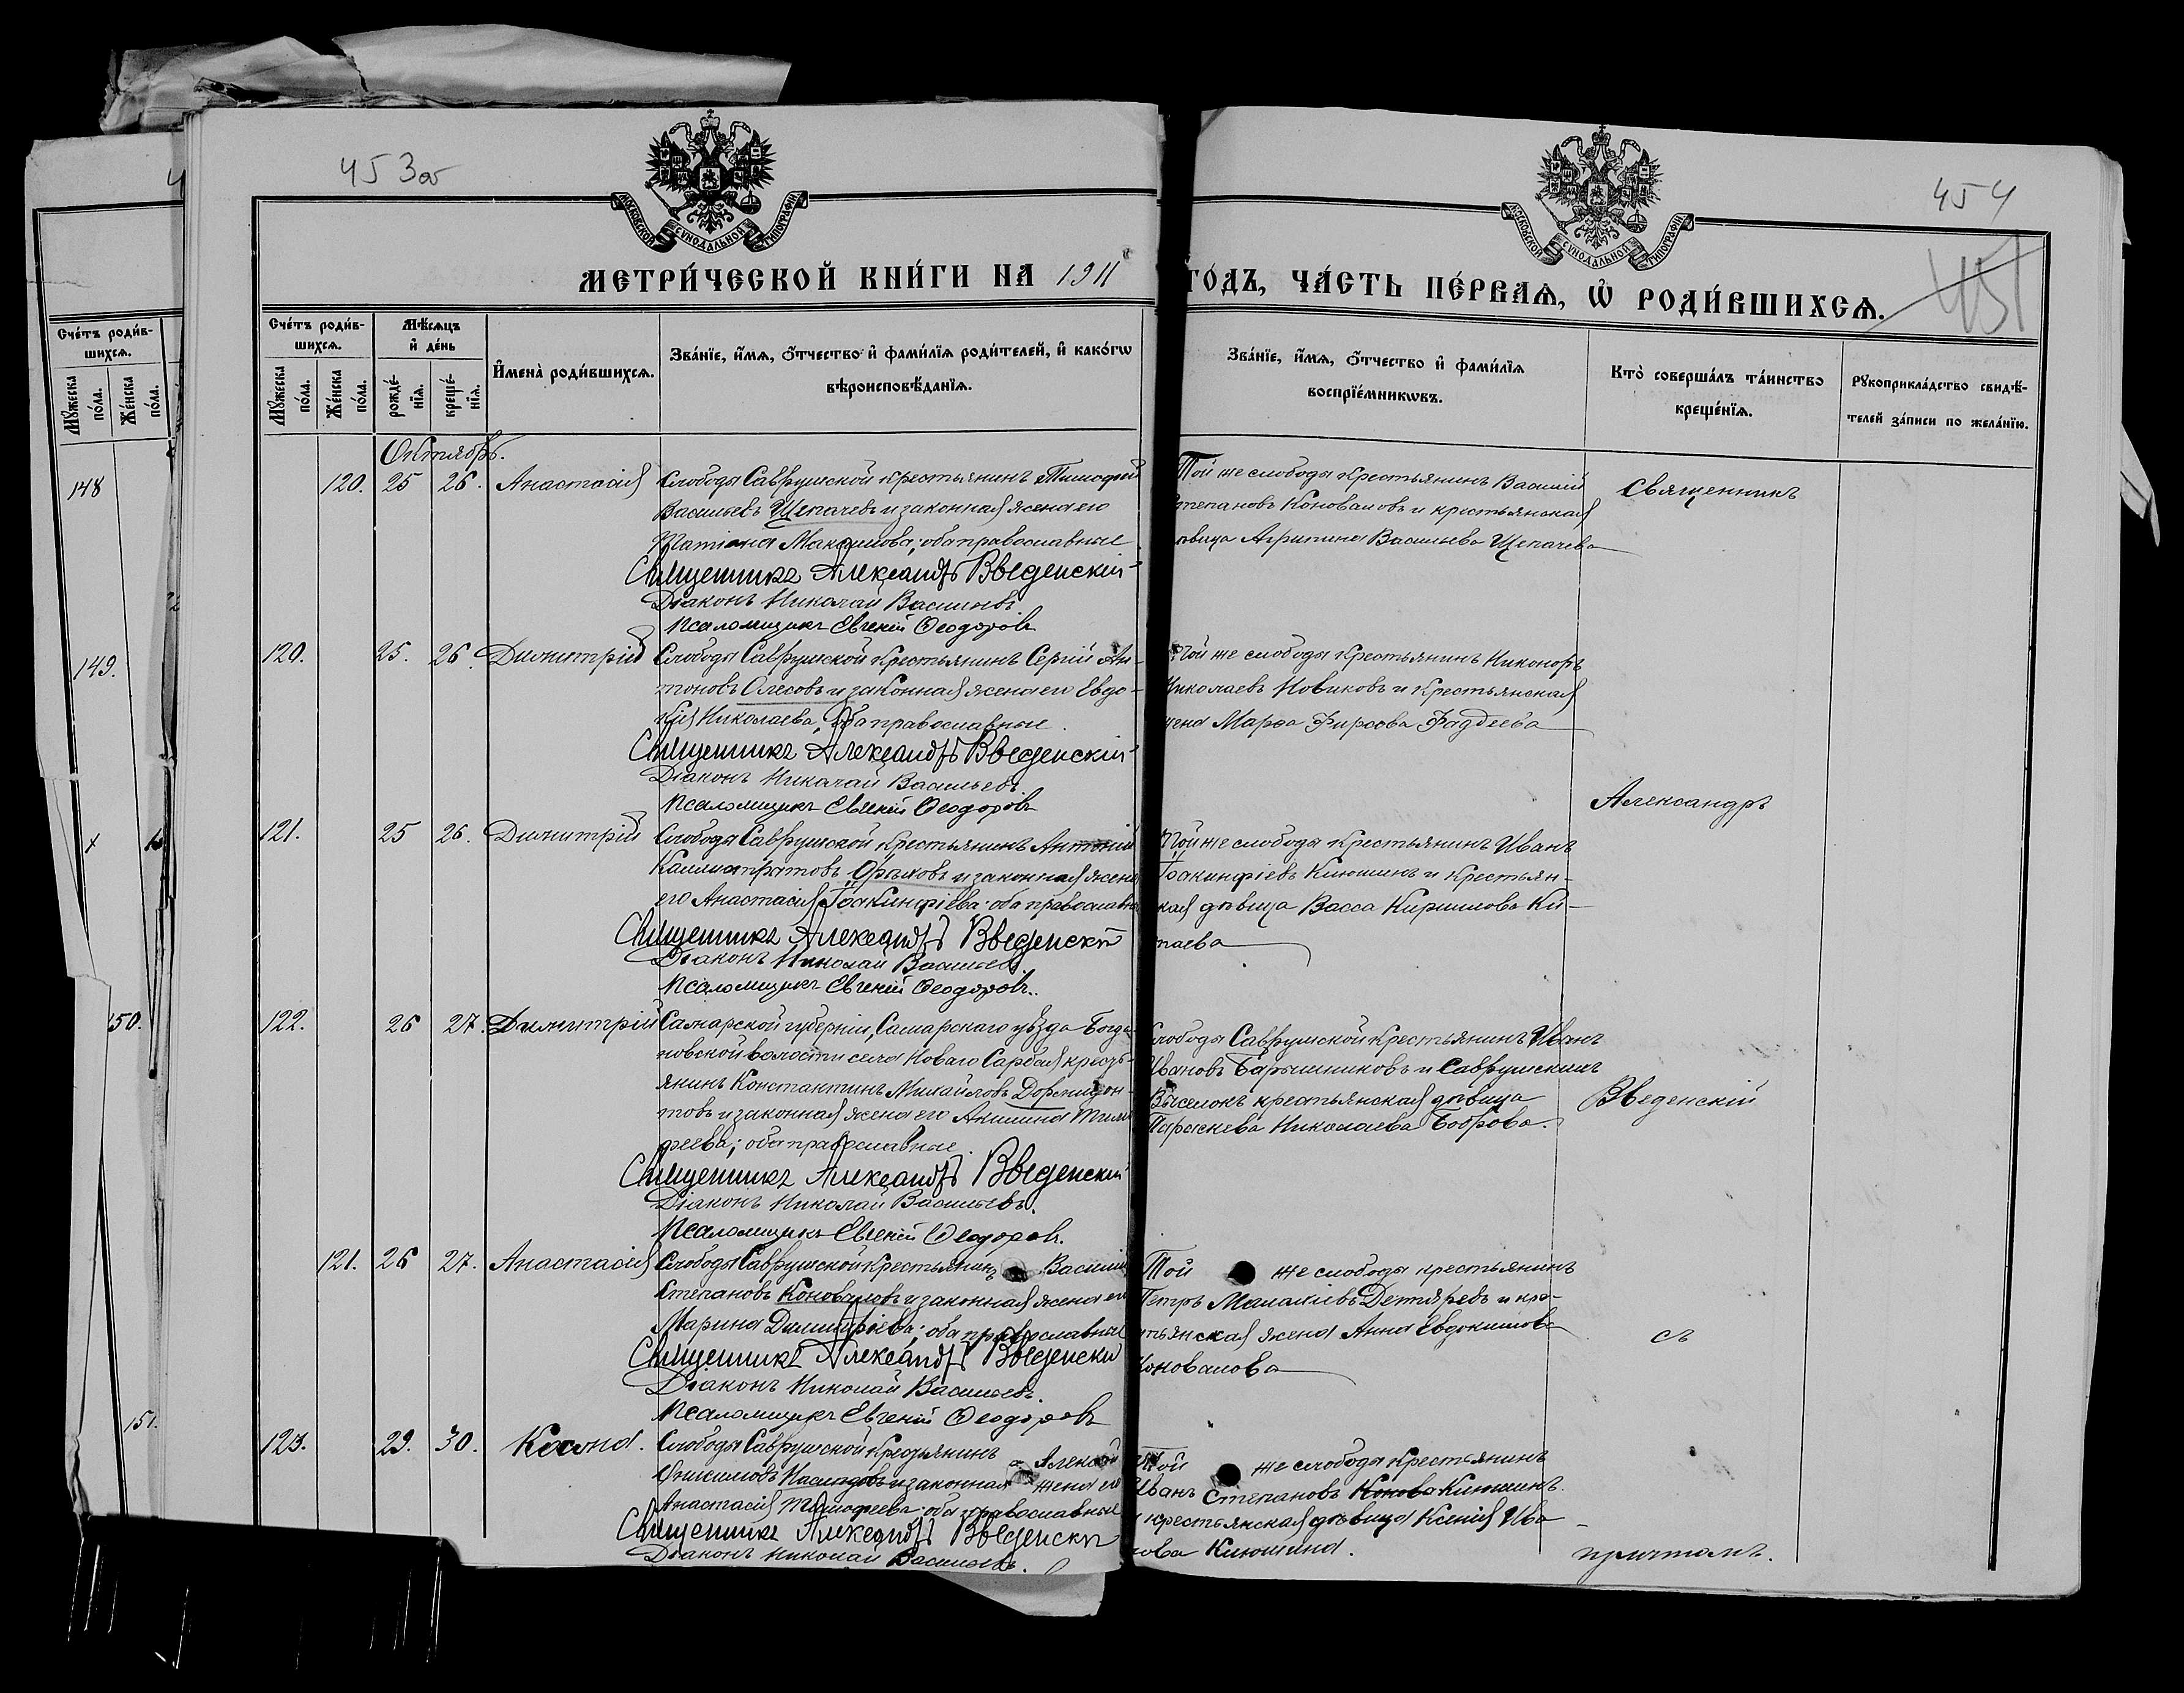 453об
454
451
МОСКОВСКОЙ СѴНОДАЛЬНОЙ ТИПОГРАФІИ
МОСКОВСКОЙ СѴНОДАЛЬНОЙ ТИПОГРАФІИ
МЕТРИ́ЧЕСКОЙ КНИ́ГИ НА 1911
ГО́ДЪ, ЧА́СТЬ ПЕ́РВАѦ, Ѡ РОДИ́ВШИХСѦ.
Сче́тъ роди́в-
шихсѧ.
Мꙋ́жеска по́ла.
Же́нска по́ла.
148
149.
150.
151.
Сче́тъ роди́в-
шихсѧ.
Мꙋ́жеска по́ла.
Же́нска по́ла.
Мѣ́сѧцъ
и де́нь
рожде́-
нїѧ.
креще́-
нїѧ.
Имена̀ роди́вшихсѧ.
Зва́нїе, и́мѧ, о́тчество и фами́лїѧ роди́телей, и како́гѡ
вѣроисповѣ́данїѧ.
Зва́нїе, и́мѧ, о́тчество и фами́лїѧ
воспрїе́мникѡвъ.
Кто̀ соверша́лъ та́инство
креще́нїѧ.
Рꙋкоприкла́дство свидѣ́-
телей за́писи по жела́нїю.
Октябрь.
120. 25 26. Анастасія Слободы Саврушской крестьянинъ Тимофей
Васильевъ Щепачевъ и законная жена его
Татіана Максимова; оба православные
Священникъ Александръ Введенскій
Діаконъ Николай Васильевъ
Псаломщикъ Евгеній Ѳеодоровъ
Той же слободы крестьянинъ Василій
Степановъ Коноваловъ и крестьянская
дѣвица Агрипина Васильева Щепачева
Священникъ
120. 25. 26. Димитрій Слободы Саврушской крестьянинъ Сергій Ан-
тоновъ Олесовъ и законная жена его Евдо-
кія Николаева, оба православные.
Священникъ Александръ Введенскій
Діаконъ Николай Васильевъ
Псаломщикъ Евгеній Ѳеодоровъ
Той же слободы крестьянинъ Никоноръ
Николаевъ Новиковъ и крестьянская
жена Марѳа Фирсова Фаддеева
Александръ
121. 25 26. Димитрій Слободы Саврушской крестьянинъ Антоній
Каллистратовъ Орѣховъ и законная жена
его Анастасія Іоакинфіева; оба православн
Священникъ Александръ Введенскій
Діаконъ Николай Васильевъ
Псаломщикъ Евгеній Ѳеодоровъ.
Той же слободы крестьянинъ Иванъ
Іоакинфіевъ Клюшинъ и крестьян-
ская дѣвица Васса Кириллова Ки-
таева
122. 26 27. Димитрій Самарской губерніи, Самарскаго уѣзда Богда-
новской волости села Новаго Сарбая кресть-
янинъ Константинъ Михайловъ Дормидон-
товъ и законная жена его Акилина Тимо
феева; оба православные.
Священникъ Александръ Введенскій
Діаконъ Николай Васильевъ.
Псаломщикъ Евгеній Ѳеодоровъ.
Слободы Саврушской крестьянинъ Иванъ
Ивановъ Барышниковъ и Саврушскихъ
Выселокъ крестьянская дѣвица
Параскева Николаева Боброва.
Введенскій
121. 26 27. Анастасія Слободы Саврушской крестьянинъ Василій
Степановъ Коноваловъ и законная жена его
Марина Димитріева; оба православные
Священникъ Александръ Введенскій
Діаконъ Николай Васильевъ.
Псаломщикъ Евгеній Ѳеодоровъ
Той же слободы крестьянинъ
Петръ Малахіевъ Дегтяревъ и кре-
стьянская жена Анна Евдокимова
Коновалова
съ
123. 29. 30. Косма. Слободы Саврушской крестьянинъ Алексій
законная жена его
Анастасія Тимофеева; оба православные
Священникъ Александръ Введенскій
Діаконъ Николай Васильевъ.
Той же слободы крестьянинъ
Иванъ Степановъ Клюшинъ
и крестьянская дѣвица Ксенія Ива-
нова Клюшина.
причтомъ.